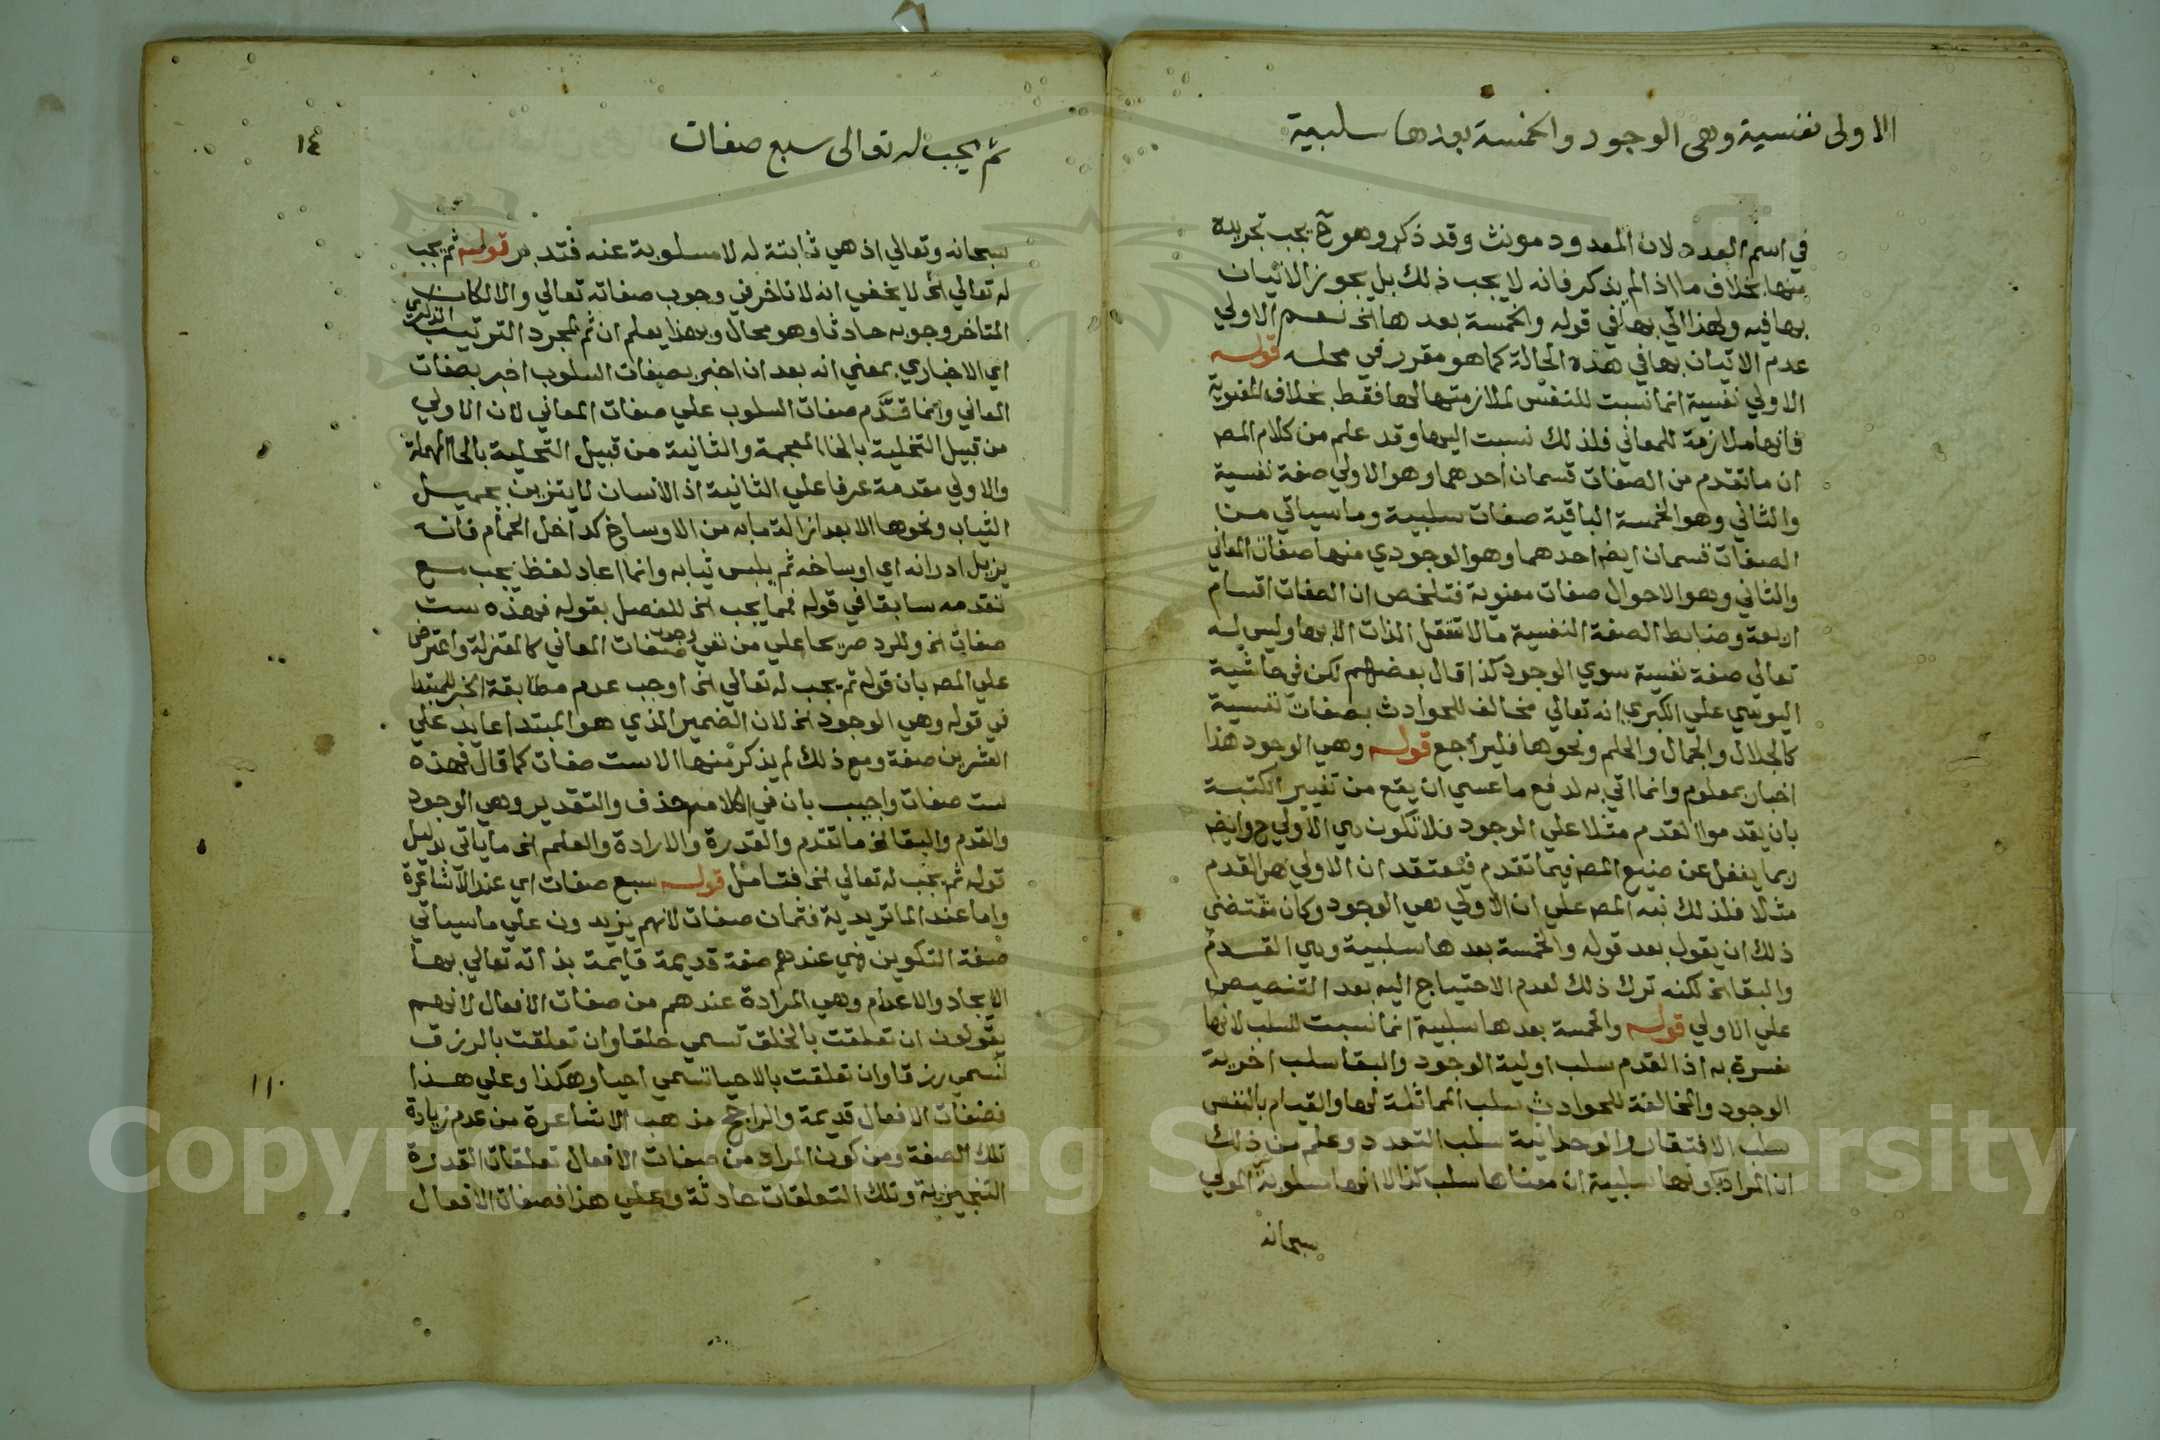 الاولى نفسية وهى الوجود والخمسة بعدها سلبية
في اسم العدد لان المعدود مونث وقد ذكر وهو ح يجب تجريده
منها بخلاف ما اذا لم يذكر فانه لا يجب ذلك بل يجوز الاتيان
بها فيه ولهذا اتي بها في قوله والخمسة بعدها الخ نعم الاولي
عدم الاتيان بها في هذه الحالة كما هو مقرر في محله قوله
الاولي نفسية انما نسبت للنفس لملازمتها لها فقط بخلاف المعنوية
فانها ملازمة للمعاني فلذلك نسبت اليها وقد علم من كلام المص
ان ما تقدم من الصفات قسمان احدهما وهو الاولي صفة نفسية
والثاني وهو الخمسة الباقية صفات سلبية وما سياتي من
الصفات قسمان ايض احدهما وهو الوجودي منها صفات المعاني
والثاني وهو الاحوال صفات معنوية فتلخص ان الصفات اقسام
اربعة وضابط الصفة النفسية ما لا تتعقل الذات الا بها وليس له
تعالي صفة نفسية سوي الوجود كذا قال بعضهم لكن في حاشية
اليوسي علي الكبري انه تعالي مخالف للحوادث بصفات نفسية
كالجلال والجمال والحلم ونحوها فليراجع قوله وهي الوجود هذا
اخبار بمعلوم وانما اتي به لدفع ما عسي ان يقع من تغيير الكتبة
بان يقدموا القدم مثلا علي الوجود فلا تكون هي الاولي ح وايض
ربما يغفل عن صنيع المص فيما تقدم فيعتقد ان الاولي هي القدم
مثلا فلذلك نبه المص علي ان الاولي هي الوجود وكان مقتضي
ذلك ان يقول بعد قوله والخمسة بعدها سلبية وهي القدم
والبقا الخ لكنه ترك ذلك لعدم الاحتياج اليه بعد التنصيص
علي الاولي قوله والخمسة بعدها سلبية انما نسبت للسلب لانها
مفسرة به اذ القدم سلب اولية الوجود والبقا سلب اخرية
الوجود والمخالفة للحوادث سلب المماثلة لها والقيام بالنفس
سلب الافتقار والوحدانية سلب التعدد وعلم من ذلك
ان المراد بكونها سلبية ان معناها سلب كذا لا انها مسلوبة المولي
سبحانه
ثم يجب له تعالى سبع صفات
١٤
سبحانه وتعالي اذ هي ثابتة له لا مسلوبة عنه فتدبر قوله ثم يجب
له تعالي الخ لا يخفي انه لا تاخر في وجوب صفاته تعالي والا لكان
المتاخر وجوبه حادثا وهو محال وبهذا يعلم ان ثم لمجرد الترتيب الذكري
اي الاخباري بمعني انه بعد ان اخبر بصفات السلوب اخبر بصفات
المعاني وانما قدَّم صفات السلوب علي صفات المعاني لان الاولي
من قبيل التخلية بالخا المعجمة والثانية من قبيل التحلية بالحا المهملة
والاولي مقدمة عرفا علي الثانية اذ الانسان لا يتزين بجميل
الثياب ونحوها الا بعد ازالة ما به من الاوساخ كداخل الحمام فانه
يزيل ادرانه اي اوساخه ثم يلبس ثيابه وانما اعاد لفظ يجب مع
تقدمه سابقا في قوله فمما يجب الخ للفصل بقوله فهذه ست
صفات الخ وللرد صريحا علي من نفي وجوب صفات المعاني كالمعتزلة واعترض
علي المص بان قوله ثم يجب له تعالي الخ اوجب عدم مطابقة الخبر للمبتدا
في قوله وهي الوجود الخ لان الضمير الذي هو المبتدا عايد علي
العشرين صفة ومع ذلك لم يذكر منها الا ست صفات كما قال فهذه
ست صفات واجيب بان في الكلام حذف والتقدير وهي الوجود
والقدم والبقا الخ ما تقدم والقدرة والارادة والعلم الخ ما ياتي بدليل
قوله ثم يجب له تعالي الخ فتامل قوله سبع صفات اي عند الاشاعرة
واما عند الماتريدية فثمان صفات لانهم يزيدون علي ما سياتي
صفة التكوين فهي عندهم صفة قديمة قايمة بذاته تعالي بها
الايجاد والاعدام وهي المرادة عندهم من صفات الافعال لانهم
يقولون ان تعلقت بالخلق تسمي خلقا وان تعلقت بالرزق
تسمي رزقا وان تعلقت بالاحيا تسمي احيا وهكذا وعلي هذا
فصفات الافعال قديمة والراجح مذهب الاشاعرة من عدم زيادة
تلك الصفة ومن كون المراد من صفات الافعال تعلقات القدرة
التنجيزية وتلك التعلقات حادثة وعلي هذا فصفات الافعال
Copyright © King Saud University